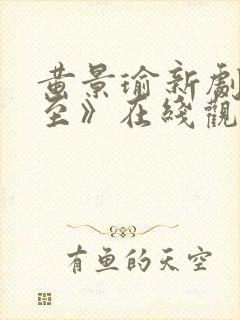 黄景瑜新劇
空》在綫觀
有魚的天空